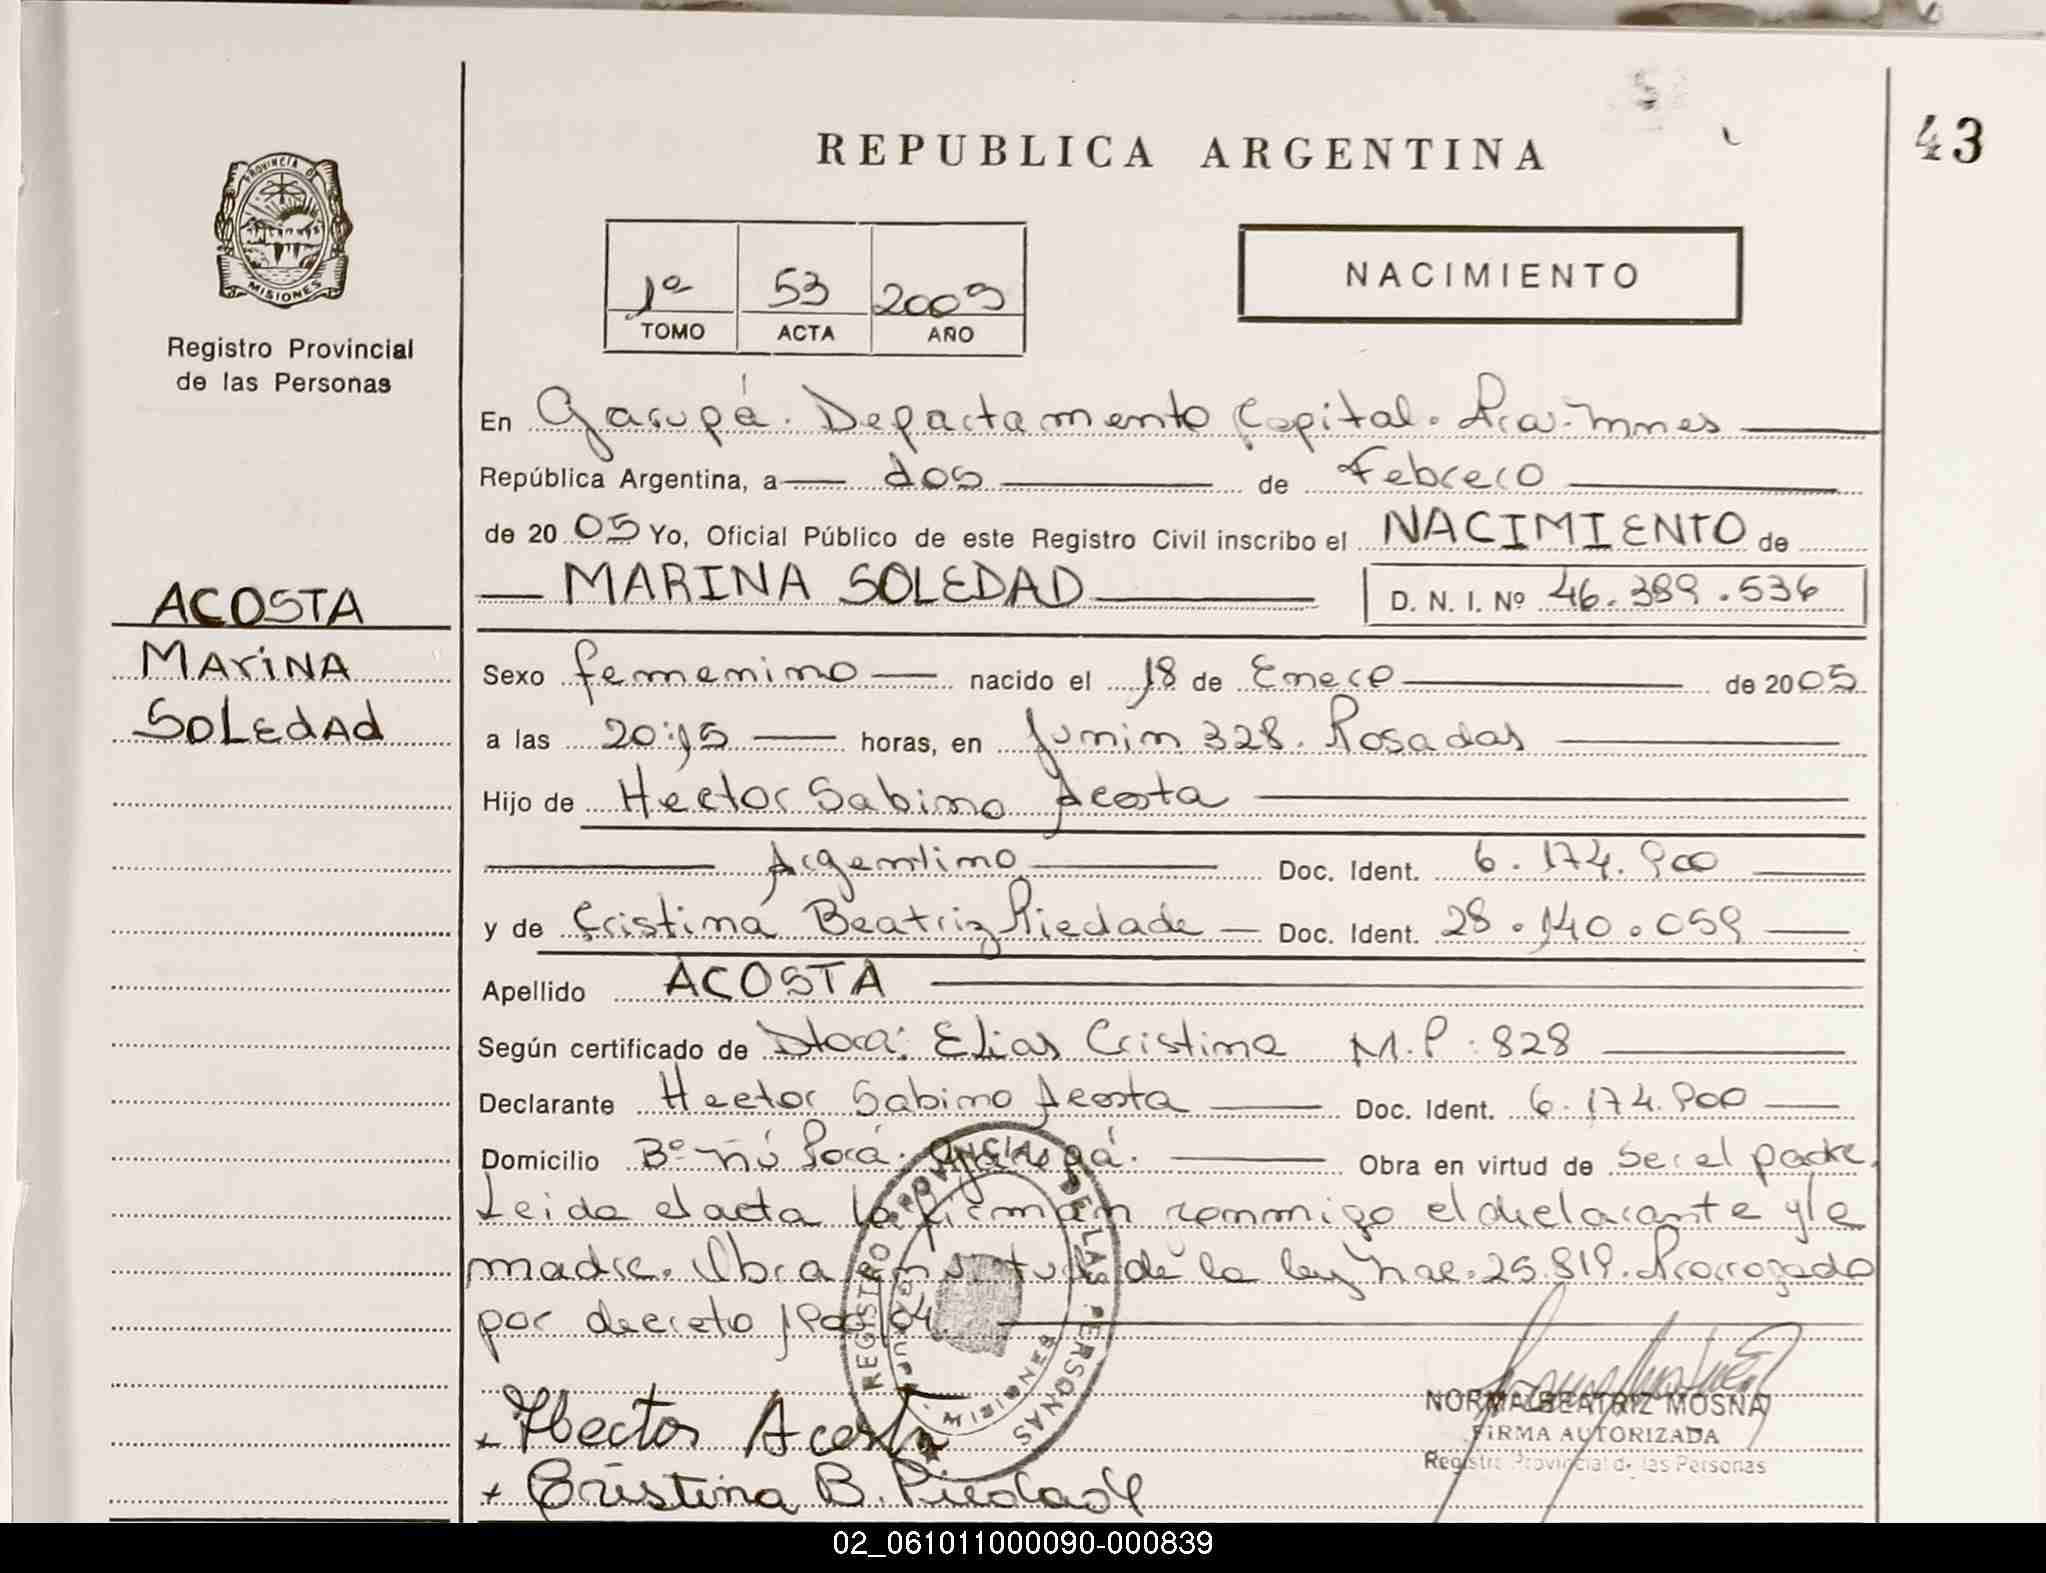 REPUBLICA ARGENTINA
43
PROVINCIA DE
MISIONES
Registro Provincial
de las Personas
1º 53 2005
TOMO ACTA AÑO
NACIMIENTO
En Garupá. Departamento Capital. Pcia. Mnes
República Argentina, a dos de Febrero
de 2005 Yo, Oficial Público de este Registro Civil inscribo el NACIMIENTO de
MARINA SOLEDAD D. N. I. Nº 46.389.536
ACOSTA
MARINA
SOLEDAD
Sexo femenino nacido el 18 de Enero de 2005
a las 20:15 horas, en Junin 328. Posadas
Hijo de Hector Sabino Acosta
Argentino Doc. Ident. 6.174.900
y de Cristina Beatriz Piedade Doc. Ident. 28.140.059
Apellido ACOSTA
Según certificado de Dtora: Elias Cristina M.P: 828
Declarante Hector Sabino Acosta Doc. Ident. 6.174.900
Domicilio Bº Ñú Porá. Garupá. Obra en virtud de ser el padre.
Leida el acta la firman conmigo el declarante y la
madre. Obra en virtud de la ley Nac. 25.819. Prorrogado
por decreto
REGISTRO PROVINCIAL DE LAS PERSONAS
MISIONES
Hector Acosta
Cristina B. Piedade
NORMA BEATRIZ MOSNA
FIRMA AUTORIZADA
Registro Provincial de las Personas
02_061011000090-000839